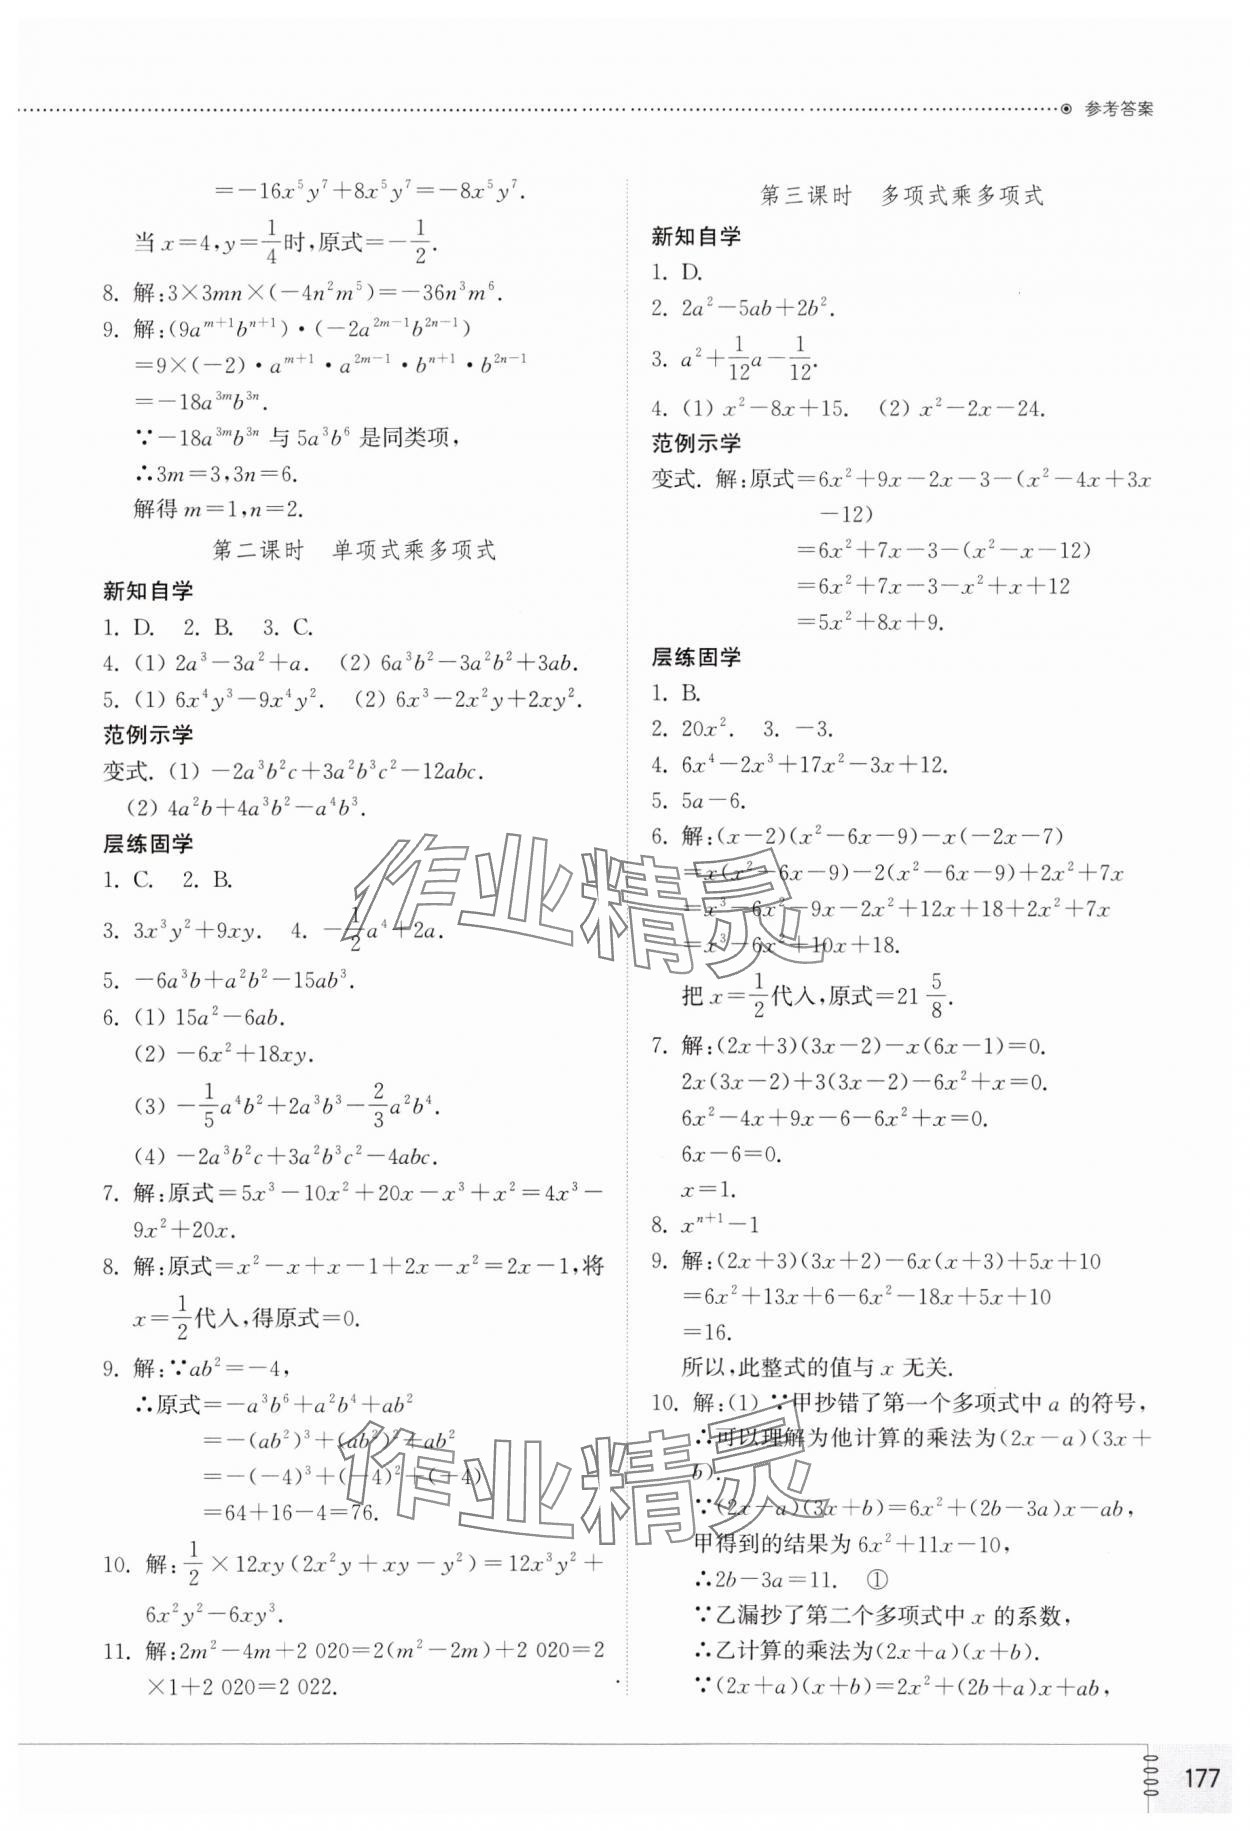 参考答案
=-16x⁵y⁷+8x⁵y⁷=-8x⁵y⁷.
当 x=4,y=1/4时,原式=-1/2.
8. 解:3×3mn×(-4n²m⁵)=-36n³m⁶.
9. 解:(9a^{m+1}b^{n+1})·(-2a^{2m-1}b^{2n-1})
=9×(-2)·a^{m+1}·a^{2m-1}·b^{n+1}·b^{2n-1}
=-18a^{3m}b^{3n}.
∵-18a^{3m}b^{3n} 与 5a³b⁶ 是同类项,
∴3m=3,3n=6.
解得 m=1,n=2.
第二课时 单项式乘多项式
新知自学
1. D. 2. B. 3. C.
4. (1) 2a³-3a²+a. (2) 6a³b²-3a²b²+3ab.
5. (1) 6x⁴y³-9x⁴y². (2) 6x³-2x²y+2xy².
范例示学
变式. (1) -2a³b²c+3a²b³c²-12abc.
(2) 4a²b+4a³b²-a⁴b³.
层练固学
1. C. 2. B.
3. 3x³y²+9xy. 4. -1/2a⁴+2a.
5. -6a³b+a²b²-15ab³.
6. (1) 15a²-6ab.
(2) -6x²+18xy.
(3) -1/5a⁴b²+2a³b³-2/3a²b⁴.
(4) -2a³b²c+3a²b³c²-4abc.
7. 解:原式=5x³-10x²+20x-x³+x²=4x³-
9x²+20x.
8. 解:原式=x²-x+x-1+2x-x²=2x-1,将
x=1/2代入,得原式=0.
9. 解:∵ab²=-4,
∴原式=-a³b⁶+a²b⁴+ab²
=-(ab²)³+(ab²)²+ab²
=-(-4)³+(-4)²+(-4)
=64+16-4=76.
10. 解:1/2×12xy(2x²y+xy-y²)=12x³y²+
6x²y²-6xy³.
11. 解:2m²-4m+2 020=2(m²-2m)+2 020=2
×1+2 020=2 022.
第三课时 多项式乘多项式
新知自学
1. D.
2. 2a²-5ab+2b².
3. a²+1/12a-1/12.
4. (1) x²-8x+15. (2) x²-2x-24.
范例示学
变式. 解:原式=6x²+9x-2x-3-(x²-4x+3x
-12)
=6x²+7x-3-(x²-x-12)
=6x²+7x-3-x²+x+12
=5x²+8x+9.
层练固学
1. B.
2. 20x². 3. -3.
4. 6x⁴-2x³+17x²-3x+12.
5. 5a-6.
6. 解:(x-2)(x²-6x-9)-x(-2x-7)
=x(x²-6x-9)-2(x²-6x-9)+2x²+7x
=x³-6x²-9x-2x²+12x+18+2x²+7x
=x³-6x²+10x+18.
把 x=1/2代入,原式=21 5/8.
7. 解:(2x+3)(3x-2)-x(6x-1)=0.
2x(3x-2)+3(3x-2)-6x²+x=0.
6x²-4x+9x-6-6x²+x=0.
6x-6=0.
x=1.
8. x^{n+1}-1
9. 解:(2x+3)(3x+2)-6x(x+3)+5x+10
=6x²+13x+6-6x²-18x+5x+10
=16.
所以,此整式的值与 x 无关.
10. 解:(1) ∵甲抄错了第一个多项式中 a 的符号,
∴可以理解为他计算的乘法为(2x-a)(3x+
b).
∵(2x-a)(3x+b)=6x²+(2b-3a)x-ab,
甲得到的结果为 6x²+11x-10,
∴2b-3a=11. ①
∵乙漏抄了第二个多项式中 x 的系数,
∴乙计算的乘法为(2x+a)(x+b).
∵(2x+a)(x+b)=2x²+(2b+a)x+ab,
作业精灵
作业精灵
177